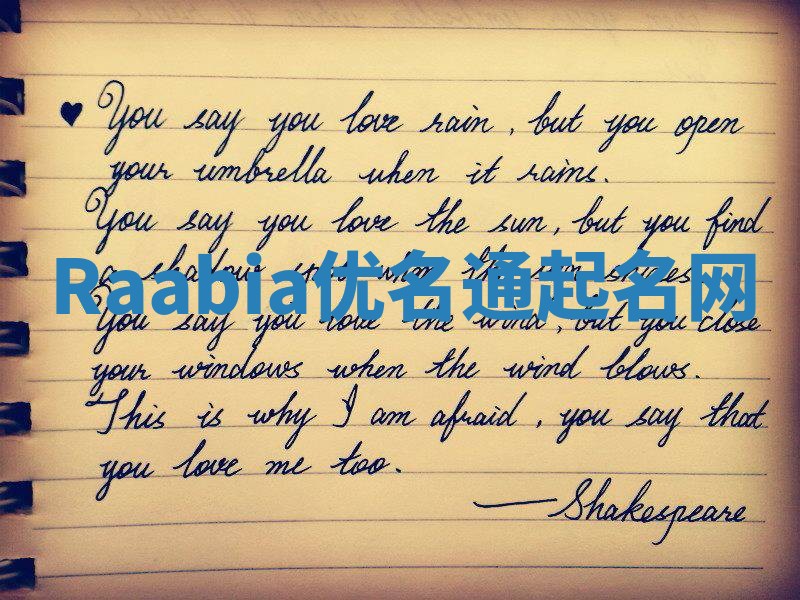 ♥ You say you love rain, but you open
your umbrella when it rains.
You say you love the sun, but you find
a shadow spot when the sun shines.
Raabia优名通起名网
You say you love the wind, but you close
your windows when the wind blows.
This is why I am afraid, you say that
you love me too.
—Shakespeare